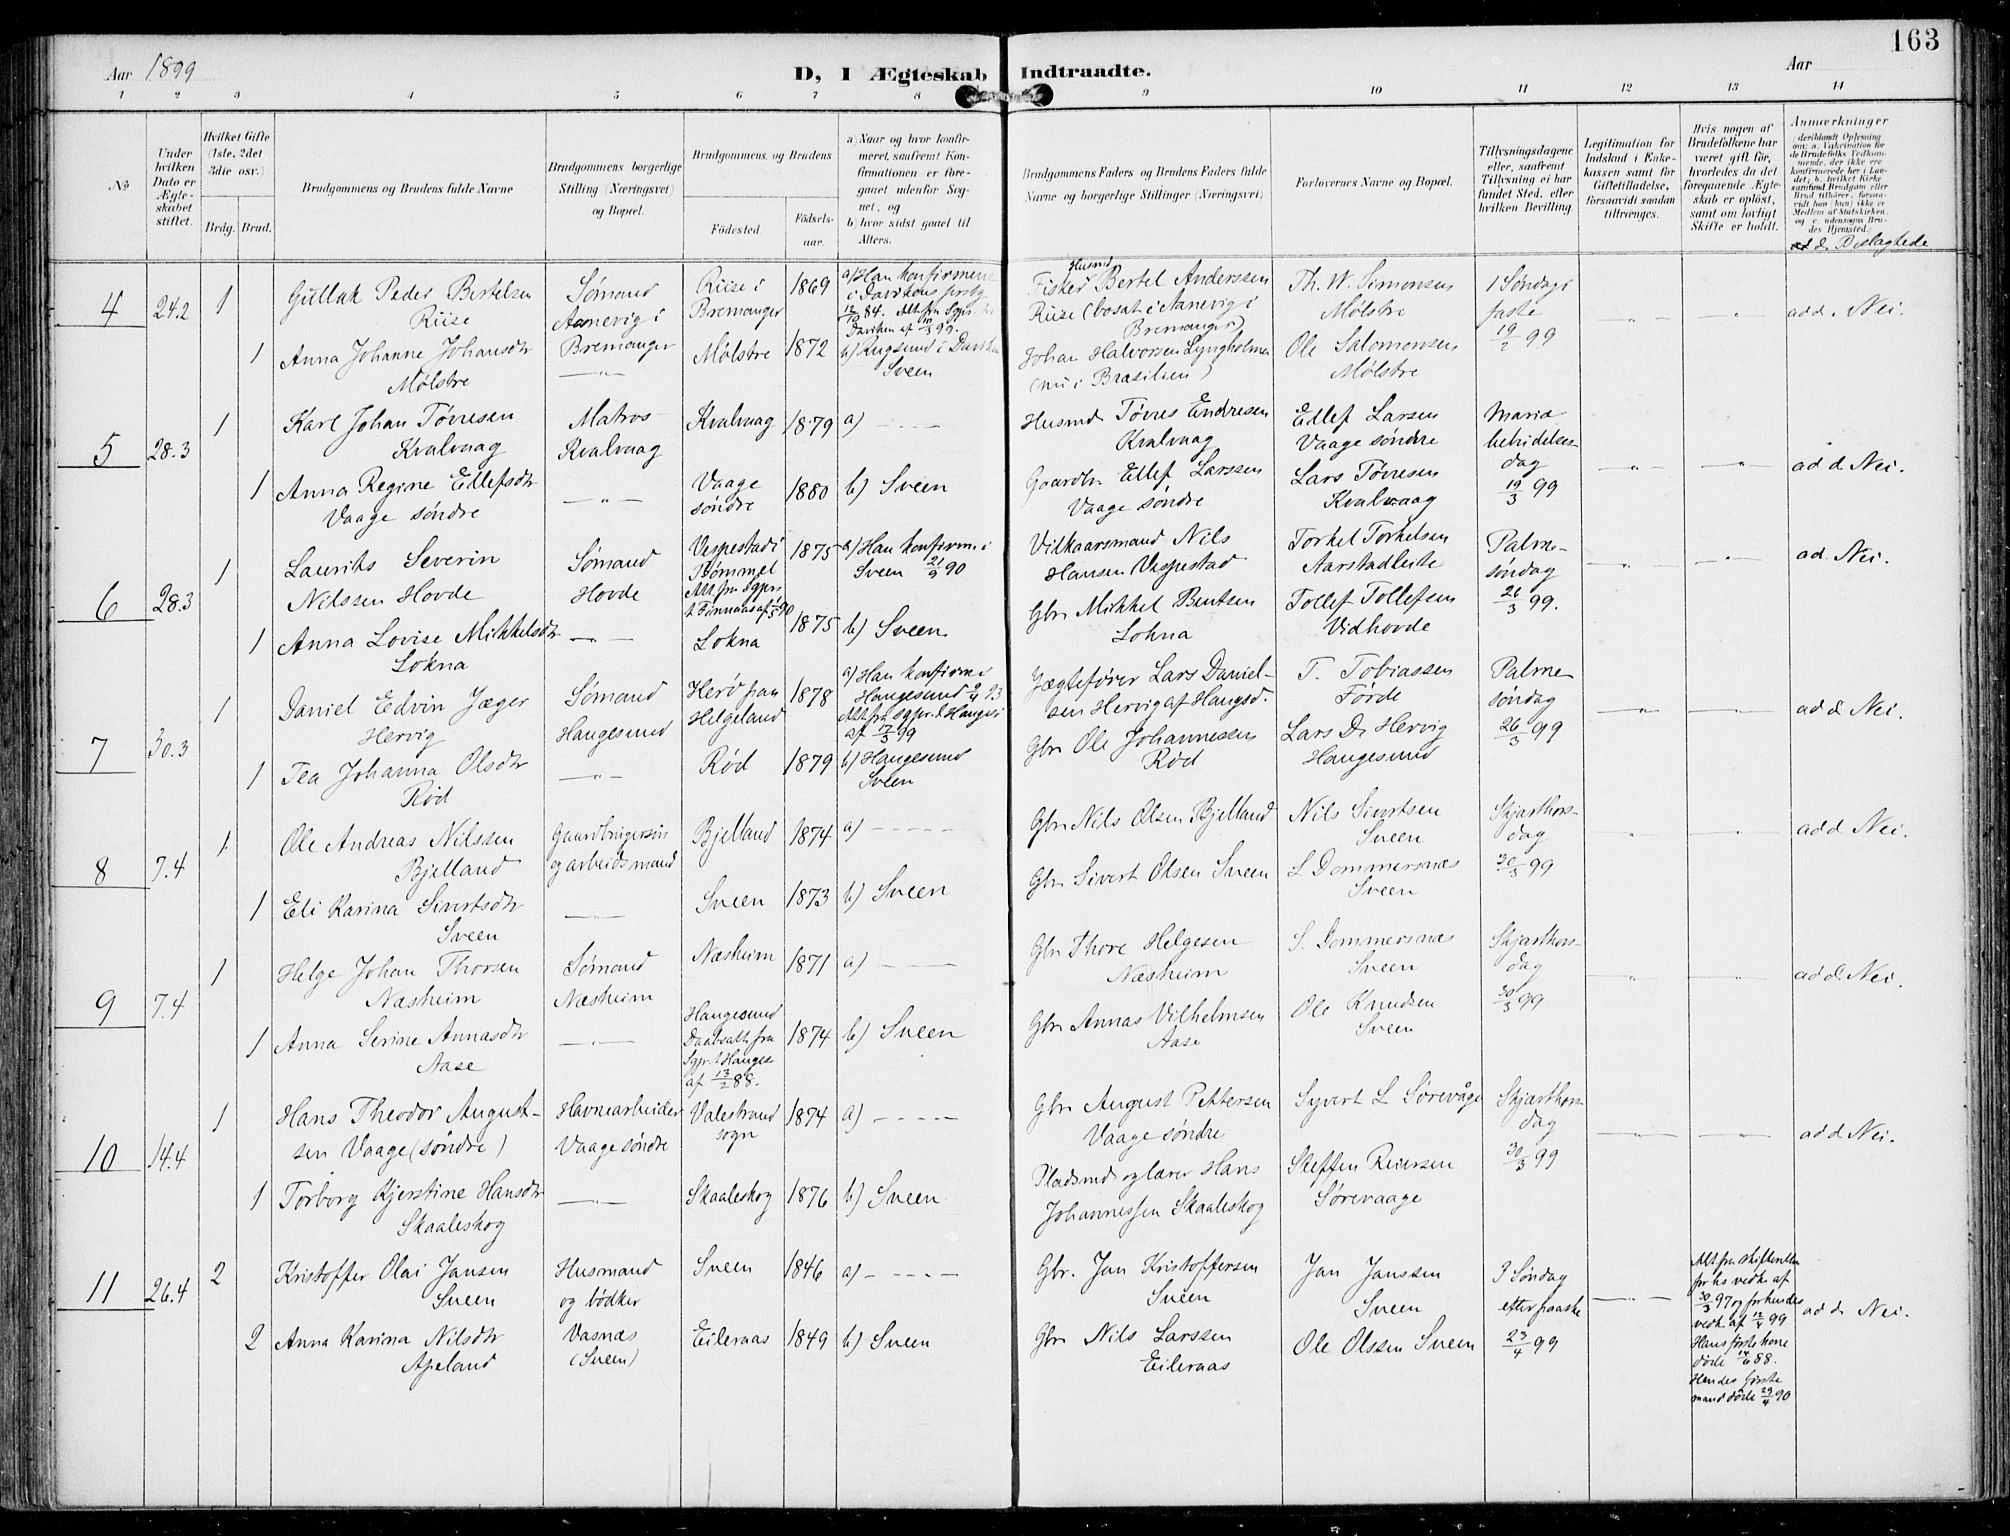 163
Aar 1899
D, I Ægteskab Indtraadte.
Aar
1 2 3 4 5 6 7 8 9 10 11 12 13 14
No
Under hvilken Dato er Ægteskabet stiftet.
Hvilket Gifte (1ste, 2det 3die osv.)
Brdg. Brud.
Brudgommens og Brudens fulde Navne
Brudgommens borgerlige Stilling (Næringsvei) og Bopæl.
Brudgommens og Brudens
Födested.
Födselsaar.
a) Naar og hvor konfirmeret, saafremt Konfirmationen er foregaaet udenfor Sognet, og
b) hvor sidst gaaet til Alters.
Brudgommens Faders og Brudens Faders fulde Navne og borgerlige Stillinger (Næringsvei)
Forlovernes Navne og Bopæl.
Tillysningsdagene eller, saafremt Tillysning ei har fundet Sted, efter hvilken Bevilling
Legitimation for Indskud i Enkekassen samt for Giftetilladelse, forsaavidt saadan tiltrænges.
Hvis nogen af Brudefolkene har været gift för, hvorledes da det foregaaende Ægteskab er oplöst, samt om lovligt Skifte er holdt.
Anmærkninger
d. Beslægtede
4
24.2
1
Gullak Peder Bertelsen
Riise
Sømand
Aanevig i
Bremanger
Riise i
Bremanger
1869
a) Han konfirmeret
i Davikens prstg
12/10 84. Att fra Sgpr. t.
Daviken af 10/3 99.
Husmd
Fisker Bertel Anderssen
Riise (bosat i Aanevig i
Bremanger)
Th. W. Simonsen
Mølstre
1 Søndag i
faste
19/2 99
ad d. Nei.
1
Anna Johanne Johansdtr
Mølstre
Mølstre
1872
b) Rugsund i Daviken
Sveen
Johan Halvorsen Lyngholmen
(nu i Brasilien)
Ole Salomonsen
Mølstre
5
28.3
1
Karl Johan Tøvresen
Kvalvaag
Matros
Kvalvaag
Kvalvaag
1879
a)
Husmd Tøvres Endresen
Kvalvaag
Ellef Larsen
Vaage søndre
Maria
bebudelses-
dag
19/3 99
ad d Nei.
1
Anna Regine Ellefsdtr
Vaage søndre
Vaage
søndre
1880
b) Sveen
Gaardbr. Ellef Larssen
Vaage søndre
Lars Tøvresen
Kvalvaag
6
28.3
1
Laurits Severin
Nilssen Hovde
Sømand
Hovde
Vespestad i
Bømmel
Att fra Sgpr
t Finnaas af
1875
a) Han konfirm. i
Sveen 21/9 90
Vilkaarsmand Nils
Hansen Vespestad
Torkel Torkelsen
Aarstadleite
Palme-
søndag
26/3 99.
ad d. Nei.
1
Anna Lovise Mikkelsdtr
Lokna
Lokna
1875
b) Sveen
Gbr Mikkel Bentsen
Lokna
Tollef Tollefsen
Vidhovde
7
30.3
1
Daniel Edvin Jæger
Hervig
Sømand
Haugesund
Herø paa
Helgeland
1878
a) Han konfirm. i
Haugesund 93
Att fra sgpr. t Hauges.
af 17/3 99
Jægtefører Lars Daniel-
sen Hervig af Haugsd.
T. Tobiassen
Førde
Palme
søndag
26/3 99
ad d Nei.
1
Tea Johanna Olsdtr
Rød
Rød
1879
b) Haugesund
Sveen
Gbr Ole Johannessen
Rød
Lars D. Hervig
Haugesund
8
7.4
1
Ole Andreas Nilssen
Bjelland
Gaardbrugersøn
og arbeidsmand
Bjelland
1874
a)
Gbr Nils Olsen Bjelland
Nils Sivertsen
Sveen
Skjærthors-
dag
30/3 99
ad d Nei.
1
Eli Karina Sivertsdtr
Sveen
Sveen
1873
b) Sveen
Gbr Sivert Olsen Sveen
S. Dommersnæs
Sveen
9
7.4
1
Helge Johan Thorsen
Næsheim
Sømand
Næsheim
Næsheim
1871
a)
Gbr Thore Helgesen
Næsheim
S. Dommersnæs
Sveen
Skjærthors-
dag
30/3 99
ad d Nei.
1
Anna Serine Annasdtr
Aase
Haugesund
Daabsatt fra
Sgpr. t Hauges
af 13/2 88.
1874
b) Sveen
Gbr Annas Vilhelmsen
Aase
Ole Knudsen
Sveen
10
14.4
1
Hans Theodor August-
sen Vaage (søndre)
Havnearbeider
Vaage søndre
Valestrand
sogn
1874
a)
Gbr August Pettersen
Vaage søndre
Syvert L Sørevåge
Skjærthors-
dag
30/3 99
ad d Nei.
1
Torborg Kjerstine Hansdtr
Skaaleskog
Skaaleskog
1876
b) Sveen
Pladsmd og lærer Hans
Johannessen Skaaleskog
Steffen Reiersen
Sørevaage
11
26.4
2
Kristoffer Olai Jansen
Sveen
Husmand
og bødker
Vasnæs
(Sveen)
Sveen
1846
a)
Gbr. Jan Kristoffersen
Sveen
Jan Janssen
Sveen
3 Søndag
efter paaske
23/4 99
Att fra skifteretten
for hs vedk. af
30/3 97 og for hendes
vedk af 12/4 99
Hans første kone
døde 14/6 88.
Hendes første
mand døde 29/4 90
ad d Nei.
2
Anna Karina Nilsdtr
Apeland
Eileraas
1849
b) Sveen
Gbr Nils Larssen
Eileraas
Ole Olssen Sveen